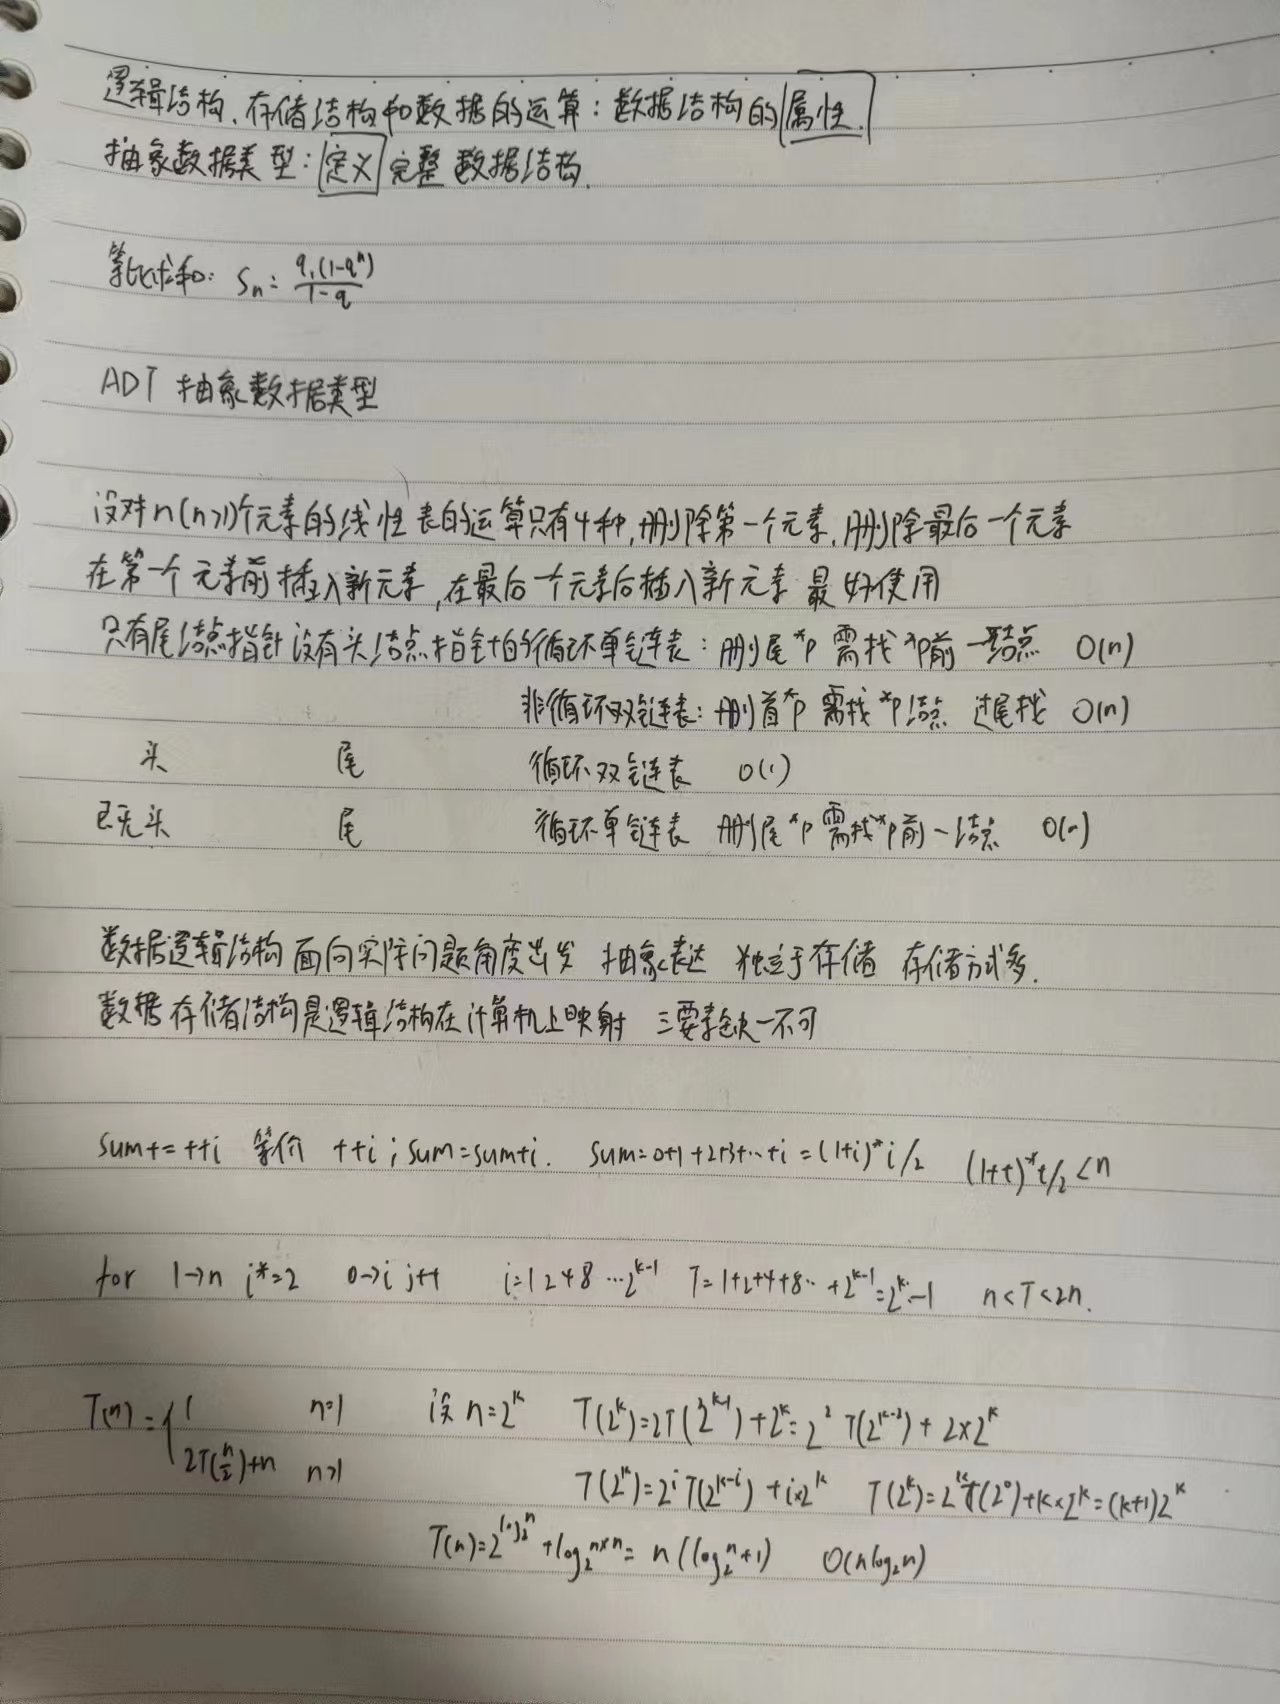 逻辑结构、存储结构和数据的运算：数据结构的属性.
抽象数据类型：定义 完整数据结构.
等比求和: Sn = q₁(1-qⁿ)/1-q
ADT 抽象数据类型
设对n(n>1)个元素的线性表的运算只有4种,删除第一个元素,删除最后一个元素
在第一个元素前插入新元素,在最后一个元素后插入新元素 最好使用
只有尾结点指针没有头结点指针的循环单链表：删尾*p 需找*p前一结点 O(n)
非循环双链表：删首*p 需找*p结点 过尾找 O(n)
头 尾 循环双链表 O(1)
既无头 尾 循环单链表 删尾*p 需找*p前一结点 O(n)
数据逻辑结构面向实际问题角度出发 抽象表达 独立于存储 存储方式多.
数据存储结构是逻辑结构在计算机上映射 三要素缺一不可
sum+=++i 等价 ++i；sum=sum+i. sum=0+1+2+3+…+i=(1+i)*i/2 (1+t)*t/2<n
for 1→n i*=2 0→i j++ i=1 2 4 8 …2^(k-1) T=1+2+4+8..+2^(k-1)=2^k-1 n<T<2n.
T(n)={1 n=1 设 n=2^k T(2^k)=2T(2^(k-1))+2^k=2² T(2^(k-2))+2×2^k
2T(n/2)+n n>1 T(2^k)=2^i T(2^(k-i))+i×2^k T(2^k)=2^k T(2^0)+k×2^k=(k+1)2^k
T(n)=2^(log₂n)+log₂n×n=n(log₂n+1) O(nlog₂n)